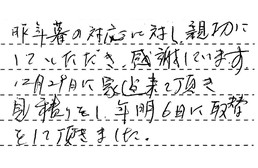 昨年暮の対応に対し親切に
していただき感謝しています
12月29日に家迄来て頂き
見積りをし年明6日に取替
をして頂きました。